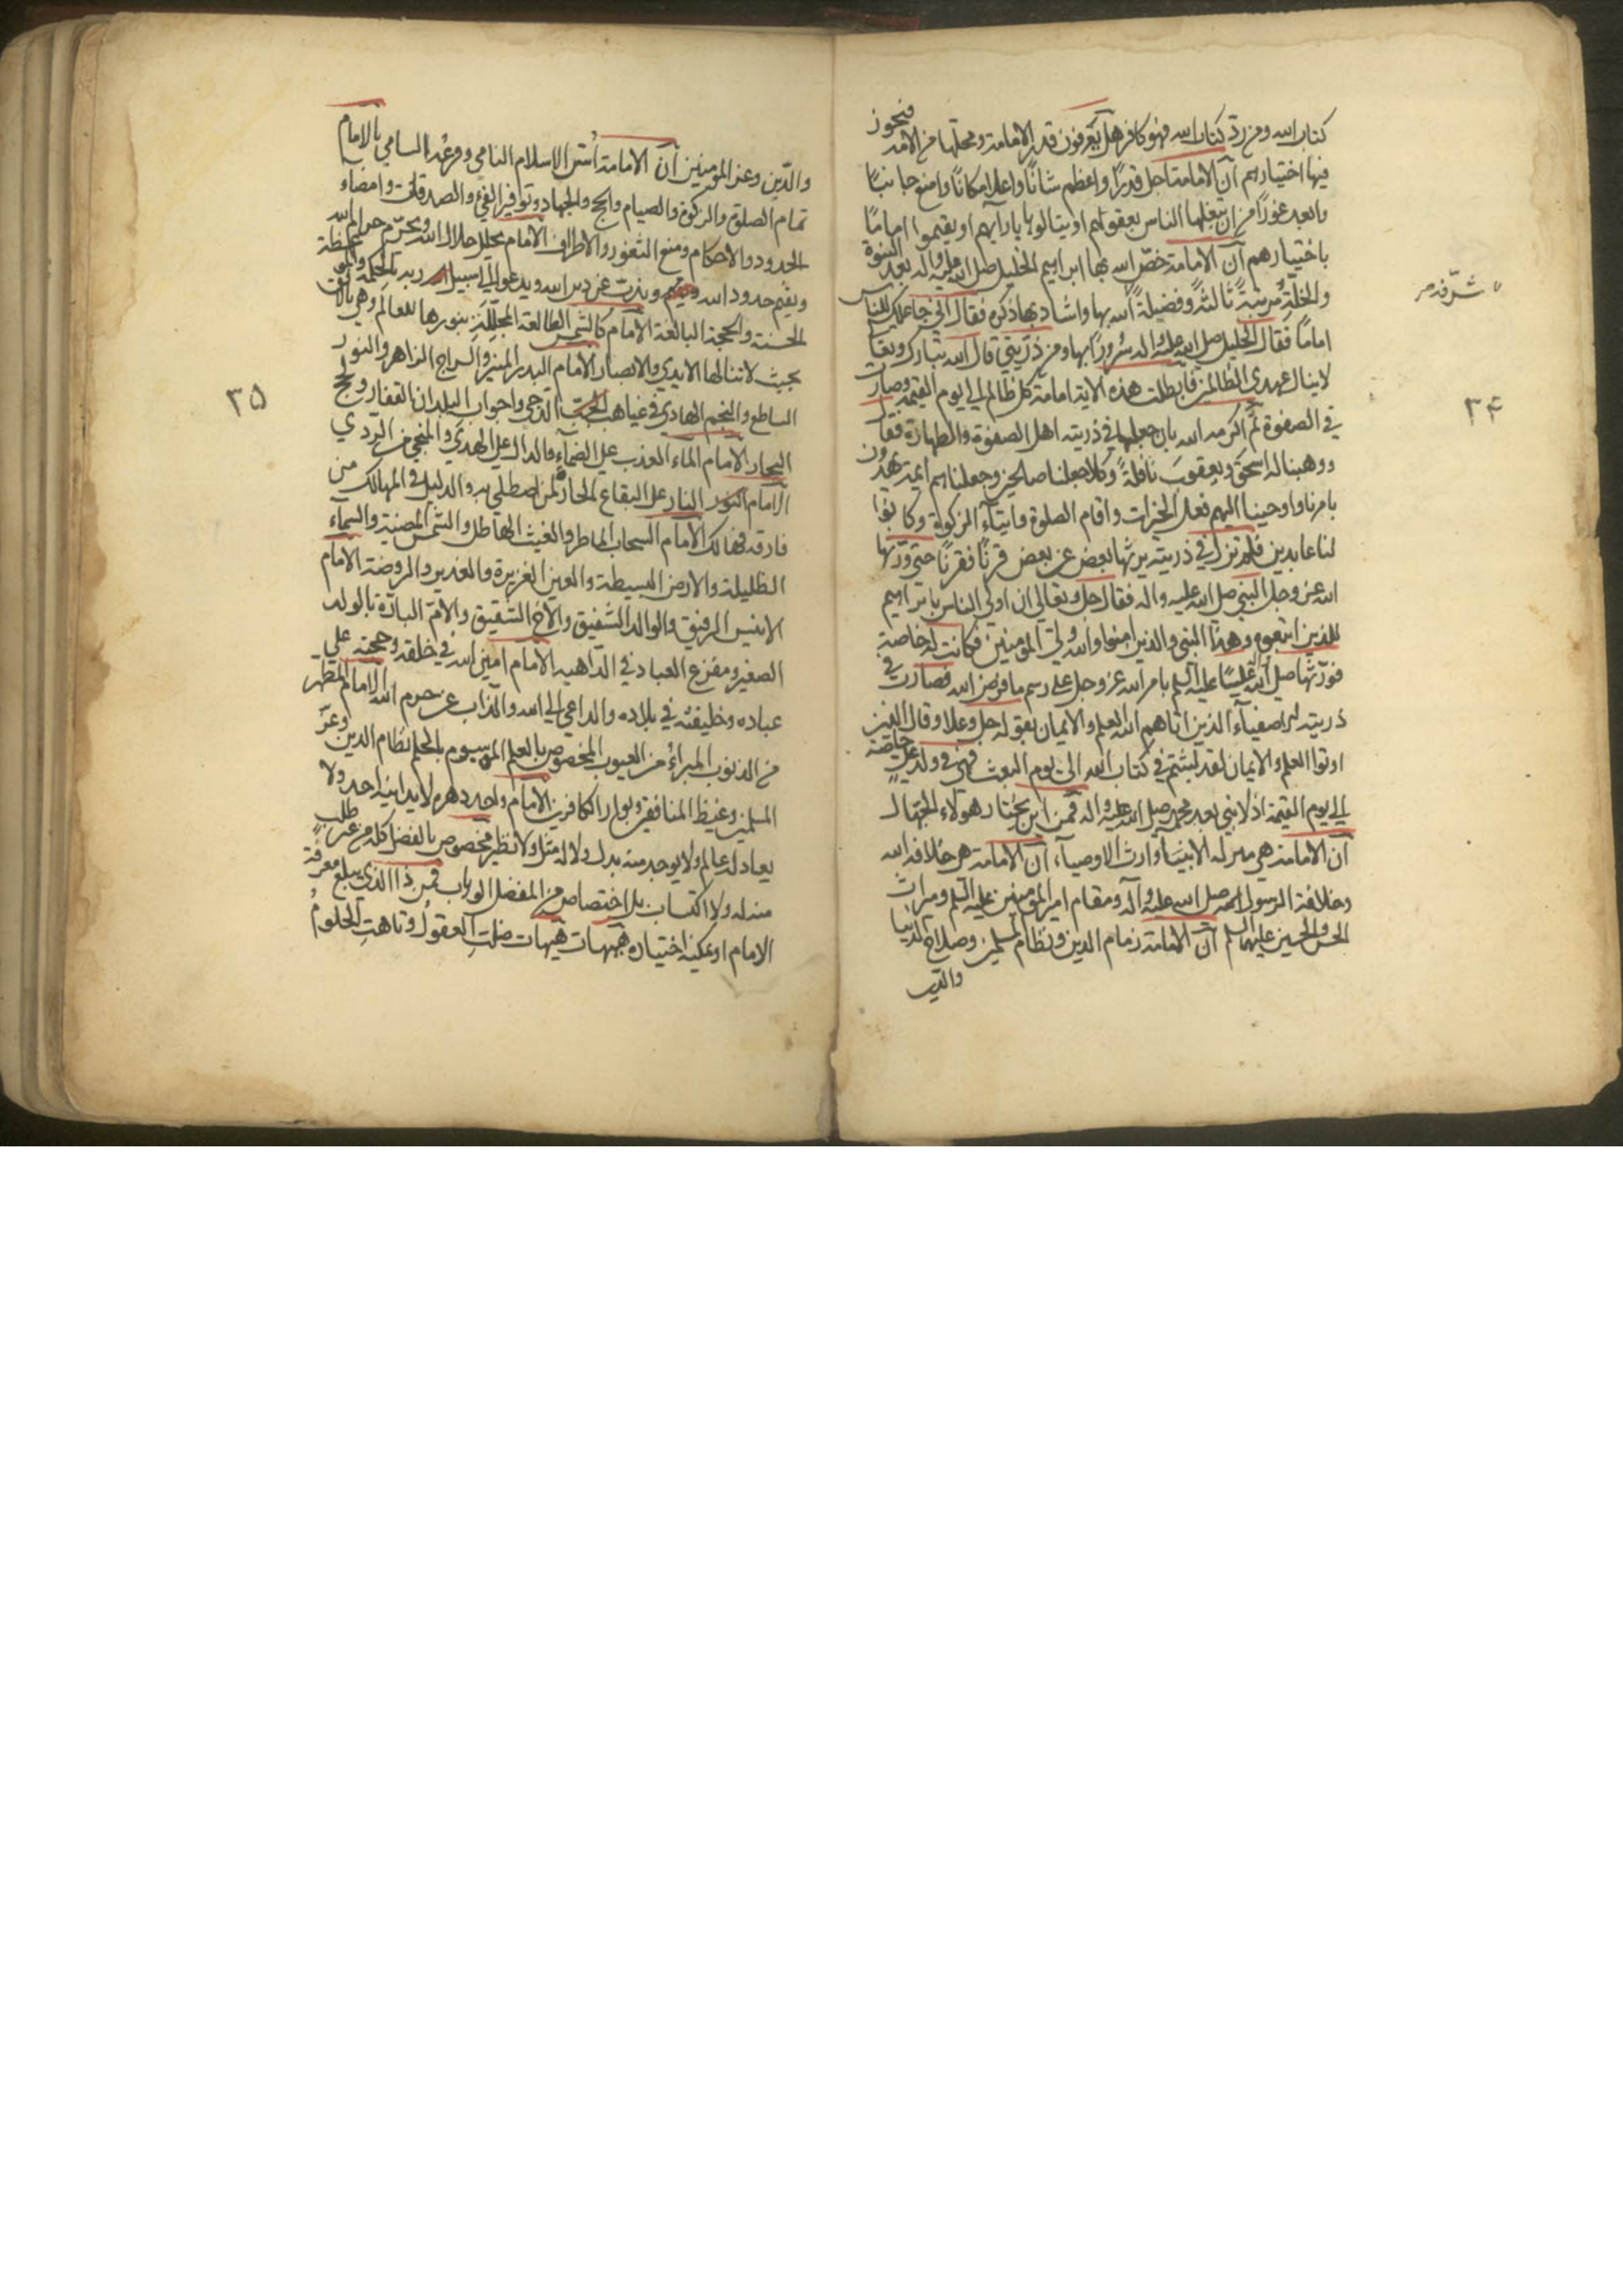 كتاب الله ومن ردّ كتاب الله فهو كافر هل يعرفون قدر الامامة ومحلها من الامة فيجوز
فيها اختيارهم ان الامامة اجل قدرًا واعظم شانًا واعلا مكانًا وامنع جانبًا
وابعد غورًا من ان يبلغها الناس بعقولهم او ينالوها بارآيهم او يقيموا امامًا
باختيارهم ان الامامة خصّ الله بها ابراهيم الخليل صلى الله عليه واله بعد النبوة
والخلّة مرتبةً ثالثةً وفضيلةً بها واشاد بها ذكره فقال انى جاعلك للناس
شرّفه
امامًا فقال الخليل صلى الله عليه واله سرورًا بها ومن ذرّيتي قال الله تبارك وتعا
لاينال عهدي الظالمين فابطلت هذه الاية امامة كل ظالم الى يوم القيمة وصارت
٣٤
في الصفوة ثم اكرمه الله بان جعلها في ذريته اهل الصفوة والطهارة فقال
ووهبنا له اسحق ويعقوب نافلةً وكلا جعلنا صالحين وجعلناهم ايمة يهدون
بامرنا واوحينا اليهم فعل الخيرات واقام الصلوة وايتآء الزكوة وكانوا
لنا عابدين فلم تزل في ذريته يرثها بعض عن بعض قرنًا فقرنًا حتى ورّثها
الله عز وجل النبي صلى الله عليه واله فقال جل وتعالى ان اولى الناس بابراهيم
للذين اتبعوه وهذا النبي والذين امنوا والله ولى المومنين فكانت له خاصة
فورّثها صلى الله عليه عليًا عليه السلم بامر الله عز وجل على رسم ما فرض الله فصارت في
ذريته الاصفياء الذين اتاهم الله العلم والايمان بقوله جل وعلا وقال الذين
اوتوا العلم والايمان لقد لبثتم في كتاب الله الى يوم البعث فهي في ولد علي خاصة
الى يوم القيمة اذ لا نبي بعد محمد صلى الله عليه واله فمن اين يختار هولاء الجهال
ان الامامة هي منزلة الانبيا وارث الاوصيآء ان الامامة هي خلافة الله
وخلافة الرسول صلى الله عليه وآله ومقام امير المومنين عليه السلم وميراث
الحسن والحسين عليهما السلم ان الامامة زمام الدين ونظام المسلمين وصلاح الدنيا
والدين
والدّين وعز المومنين ان الامامة اُسّ الاسلام النامي وفرعُه السامي بالامام
تمام الصلوة والزكوة والصيام والحج والجهاد وتوفير الفئ والصدقات وامضاء
الحدود والاحكام ومنع الثغور والاطراف الامام يحلل حلال الله ويحرّم حرام الله
ويقيم حدود الله ويذبّ عن دين الله ويدعو الى سبيل ربه بالحكمة والموعظة
الحسنة والحجة البالغة الامام كالشمس الطالعة المجلّلة بنورها للعالم وهي بالافق
بحيث لا تنالها الايدي والابصار الامام البدر المنير والسراج الزاهر والنور
الساطع والنجم الهادي في غياهب الدّجى واجواب البلدان القفار ولجج
٣٥
البحار الامام المآء العذب على الضمآء والدال على الهدى والمنجي من الردي
الامام النار على اليفاع الحارّ لمن اصطلى به والدليل في المهالك من
فارقه فهالك الامام السحاب الماطر والغيث الهاطل والشمس المضيئة والسمآء
الظليلة والارض البسيطة والعين الغزيرة والغدير والروضة الامام
الانيس الرفيق والوالد الشفيق والاخ الشقيق والامّ البارّة بالولد
الصغير ومفزع العباد في الداهيه الامام امين الله في خلقه وحجته على
عباده وخليفته في بلاده والداعي الى الله والذاب عن حرم الله الامام المطهر
من الذنوب المبراء من العيوب المخصوص بالعلم الموسوم بالحلم نظام الدين وعزّ
المسلمين وغيظ المنافقين وبوار الكافرين الامام واحد دهره لايدانيه احد ولا
يعادله عالم ولا يوجد منه بدل ولا له مثل ولا نظير مخصوص بالفضل كله من غير طلب
منه له ولا اكتساب بل اختصاص من المفضل الوهاب فمن ذا الذى يبلغ معرفة
الامام او يمكنه اختياره هيهات هيهات ضلت العقول وتاهت الحلومُ